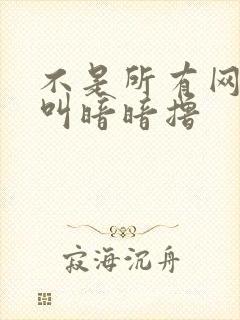 不是所有网
叫暗暗撸
寂海沉舟